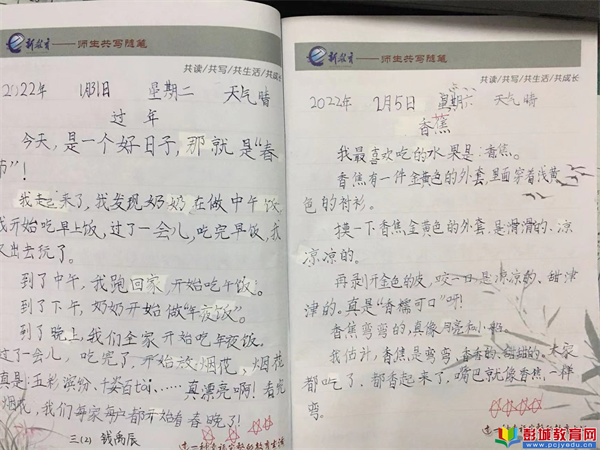 新教育——师生共写随笔
共读/共写/共生活/共成长
2022年 1月31日 星期二 天气晴
过年
今天,是一个好日子,那就是“春
节”!
我起来了,我发现奶奶在做中午饭,
我开始吃早上饭,过了一会儿,吃完早饭,我
又出去玩了。
到了中午,我跑回家,开始吃午饭。
到了下午,奶奶开始做“年夜饭”。
到了晚上,我们全家开始吃年夜饭。
过了一会儿,吃完了,开始放烟花,烟花
真是五彩缤纷、千姿百tài、……真漂亮啊!看完
烟花,我们每家每户都开始看春晚了!
三(2) 钱禹辰
新教育——师生共写随笔
共读/共写/共生活/共成长
2022年 2月5日 星期六 天气晴
香蕉
我最喜欢吃的水果是:香蕉。
香蕉有一件金黄色的外套,里面穿着浅黄
色的衬衫。
摸一下香蕉金黄色的外套,是滑滑的、凉
凉凉的。
再剥开金色的皮,咬一口是凉凉的、甜津
津的。真是“香糯可口”呀!
香蕉弯弯的,真像月亮和小船。
我估计,香蕉是弯弯、香香的、甜甜的、大家
都吃了,都香起来了,嘴巴就像香蕉一样
弯。
彭城教育网
pcjyw.com